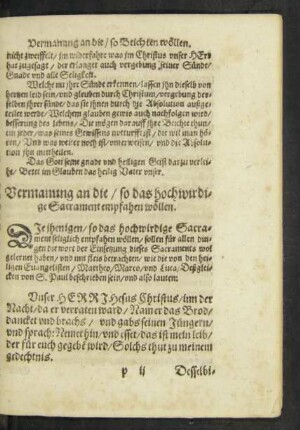 Vermanung an die / so Beichten wöllen.
nicht zweiffelt / im widerfahre was im Christus vnser HErr
hat zugesagt / der erlanget auch vergebung seiner Sünde /
Gnade vnd alle Seligkeit.
Welche nu ihre Sünde erkennen / lassen ihn dieselb von
hertzen leid sein / vnd gleuben durch Christum / vergebung der-
selben ihrer sünde / das sie ihnen durch die Absolution außge-
teilet werde / Welchem glauben gewis auch nachfolgen wird /
besserung des Lebens / Die mögen dar auff ihre Beichte thun /
ein jeder / was seines Gewissens notturfft ist / die wil man hö-
ren / Vnd was weiter noth ist / vnterweisen / vnd die Absolu-
tion ihn mittheilen.
Das Gott seine gnade vnd heiligen Geist darzu verlei-
he / Betet im Glauben das heilig Vater vnser.
Vermanung an die / so das hochwirdi-
ge Sacrament empfahen wöllen.
Diejenigen / so das hochwirdige Sacra-
ment seliglich empfahen wöllen / sollen für allen din-
gen der wort der Einsetzung dieses Sacraments wol
gelernet haben / vnd mit fleis betrachten / wie die von den hei-
ligen Euangelisten / Mattheo / Marco / vnd Luca / Deßglei-
cken von S. Paul beschrieben sein / vnd also lauten:
Vnser HERR JHesus Christus / inn der
Nacht / da er verraten ward / Nam er das Brod /
dancket vnd brachs / vnd gabs seinen Jüngern /
vnd sprach: Nemet hin / vnd esset / das ist mein leib /
der für euch gegebē wird / Solchs thut zu meinem
gedechtnis.
p ij Desselbi-